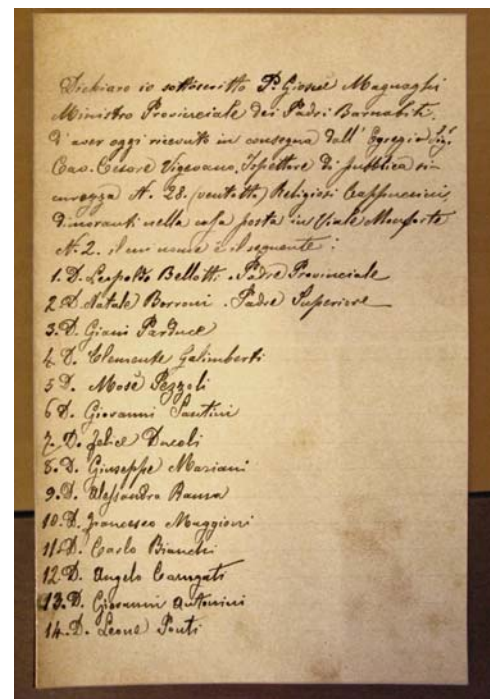 Dichiaro io sottoscritto P. Giosuè Magnaghi
Ministro Provinciale dei Padri Barnabiti,
d'aver oggi ricevuto in consegna dall'Egregio Sig.
Cav. Cesare Vigevano, Ispettore di pubblica si
curezza N. 28. (ventotto) Religiosi Cappuccini,
dimoranti nella casa posta in Viale Monforte
N. 2. il cui nome è il seguente:
1. D. Leopoldo Bellotti. Padre Provinciale
2. D. Natale Borroni. Padre Superiore
3. D. Giani
4. D. Clemente Galimberti
5 D. Mosè Pezzoli
6 D. Giovanni Santini
7. D. Felice Dacoli
8. D. Giuseppe Mariani
9. D. Alessandro
10. D. Francesco Maggioni
11. D. Carlo Bianchi
12. D. Angelo Carugati
13. D. Giovanni Antonini
14. D. Leone Ponti